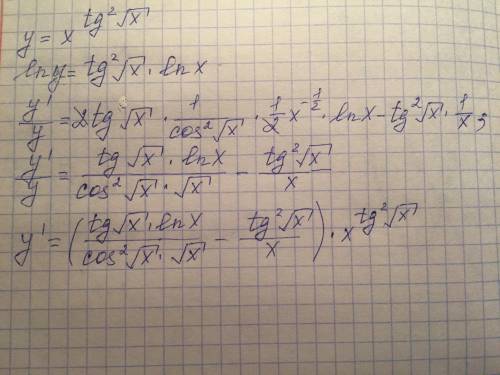 y = x^(tg²√x)
ln y = tg²√x · ln x
y'/y = 2tg√x · 1/cos²√x · 1/2 x^(-1/2) · ln x - tg²√x · 1/x;
y'/y = (tg√x · ln x)/(cos²√x · √x) - tg²√x/x
y' = ((tg√x · ln x)/(cos²√x · √x) - tg²√x/x) · x^(tg²√x)